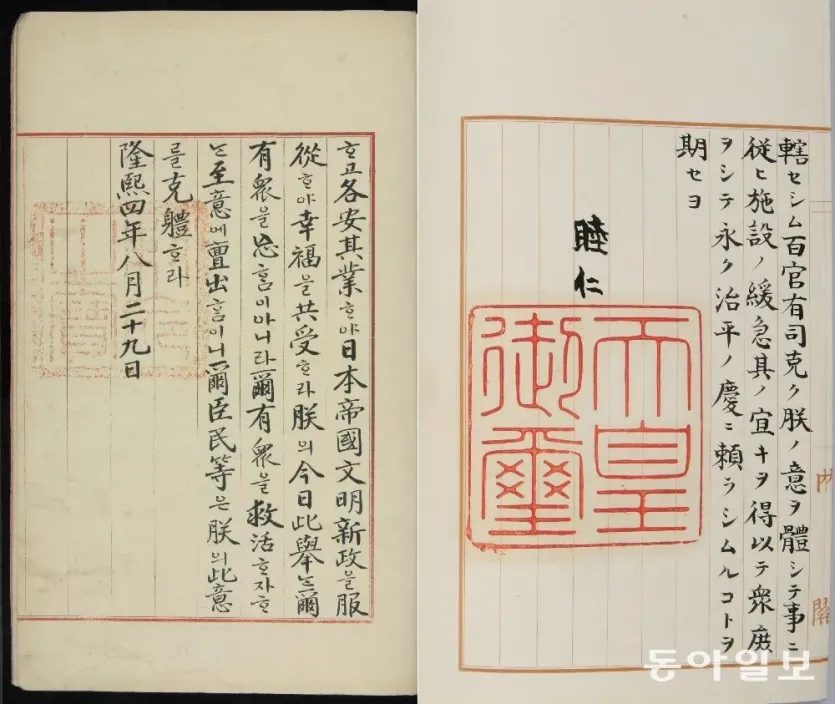 ᄒᆞ고各安其業ᄒᆞ야日本帝國文明新政을服
從ᄒᆞ야幸福을共受ᄒᆞ라朕의今日此擧ᄂᆞᆫ爾
有衆을忘홈이아니라爾有衆을救活ᄒᆞ자ᄒᆞ
ᄂᆞᆫ至意에亶出홈이니爾臣民等은朕의此意
를克體ᄒᆞ라
隆熙四年八月二十九日
轄セシム百官有司克ク朕ノ意ヲ體シテ事ニ
從ヒ施設ノ緩急其ノ宜キヲ得以テ衆庶
ヲシテ永ク治平ノ慶ニ頼ラシムルコトヲ
期セヨ
睦仁
天皇
御璽
内閣
동아일보